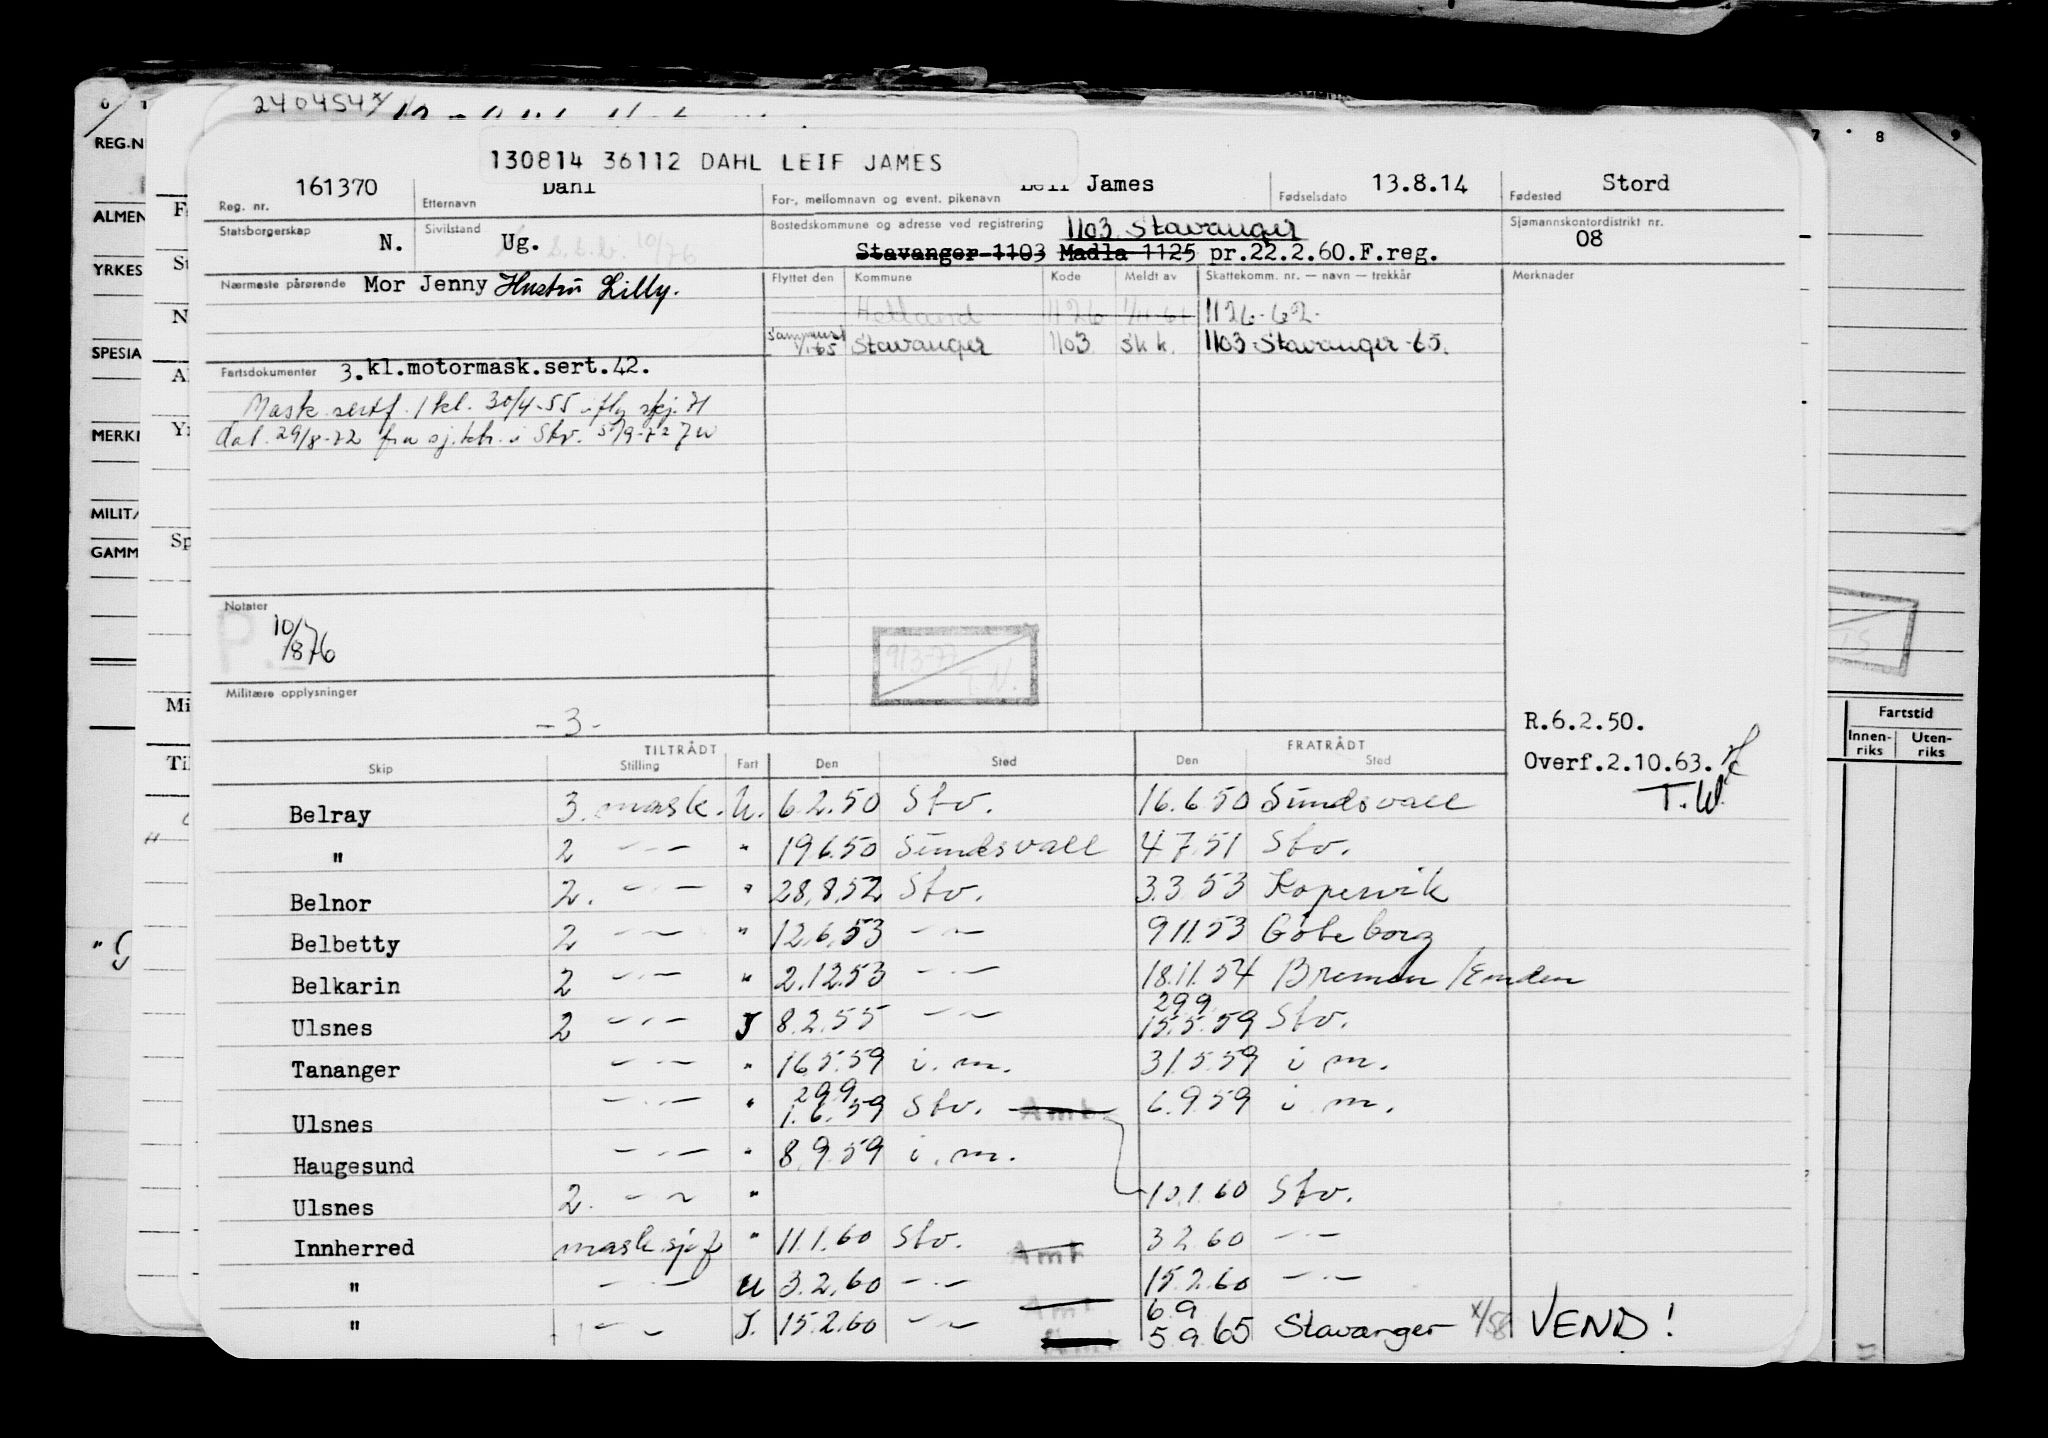 240454
130814 36112 DAHL LEIF JAMES
161370 Dahl Leif James 13.8.14 Stord
Reg. nr. Etternavn For-, mellomnavn og event. pikenavn Fødselsdato Fødested
Statsborgerskap N. Sivilstand Ug. 10/76 Bostedskommune og adresse ved registrering 1103 Stavanger Sjømannskontordistrikt nr. 08
Stavanger 1103 Madla 1125 pr.22.2.60.F.reg.
Nærmeste pårørende Mor Jenny Hustru Lilly. Flyttet den Kommune Kode Meldt av Skattekomm. nr. — navn — trekkår Merknader
Hetland 1126 1126-62-
1/1-65 Stavanger 1103 Sk k. 1103 Stavanger-65.
Fartsdokumenter 3.kl.motormask.sert.42.
Mask.sertf. 1 kl. 30/4-55 iflg skj. 71
dat. 29/8-72 fra sj.ktr. i Stv. 5/9-72
Notater
P.
10/876
9/3-77
T.N.
Militære opplysninger
-3-
R.6.2.50.
Overf.2.10.63.
T.W.
TILTRÅDT FRATRÅDT
Skip Stilling Fart Den Sted Den Sted
Belray 3. mask. U. 6.2.50 Stv. 16.6.50 Sundsvall
" 2 —"— " 19.6.50 Sundsvall 4.7.51 Stv.
Belnor 2. —"— " 28.8.52 Stv. 3.3.53 Kopervik
Belbetty 2 —"— " 12.6.53 —"— 9.11.53 Göteborg
Belkarin 2 —"— " 2.12.53 —"— 18.11.54 Bremen/Emden
29.9.
Ulsnes 2 —"— J 8.2.55 —"— 15.5.59 Stv.
Tananger —"— " 16.5.59 i.m. 31.5.59 i m.
29.9
Ulsnes —"— " 1.6.59 Stv. Amt. 6.9.59 i m.
Haugesund —"— " 8.9.59 i.m.
Ulsnes 2. —"— " 10.1.60 Stv.
Innherred mask.sjef " 11.1.60 Stv. Amt 3.2.60 —"—
" —"— U 3.2.60 —"— 15.2.60 —"—
Amt 6.9
" —"— J. 15.2.60 —"— 5.9.65 Stavanger x/58 VEND!
REG.N
ALMEN
YRKES
SPESIA
MERKN
MILIT
GAMM
Fartstid
Innen-riks Uten-riks
7 8 9